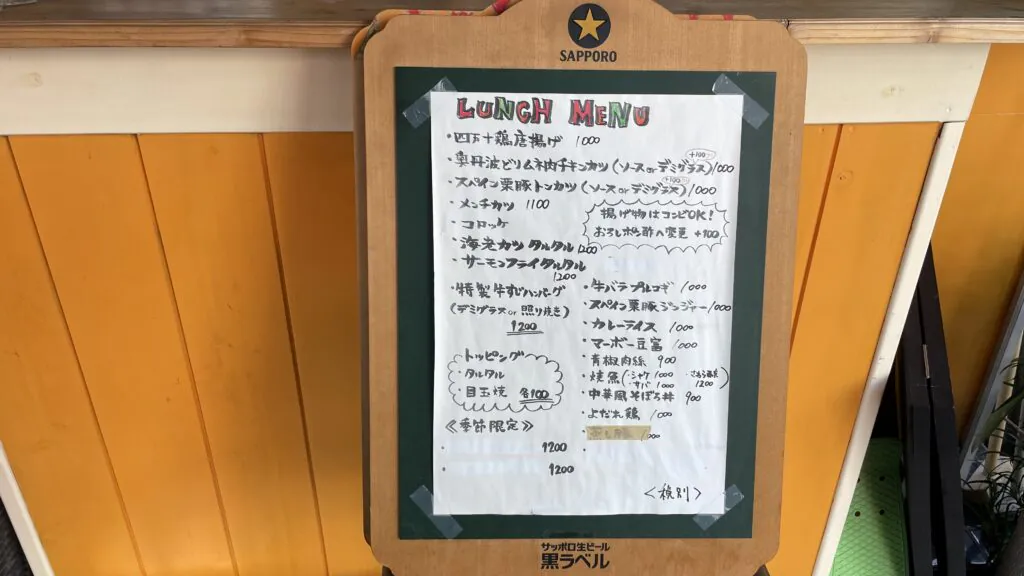 SAPPORO
LUNCH MENU
・四万十鶏唐揚げ 1000
・奥丹波どりムネ肉チキンカツ (ソース or デミグラス) 1000
+100
・スペイン栗豚トンカツ (ソース or デミグラス) 1000
+100
・メンチカツ 1100
・コロッケ
・海老カツ タルタル 1200
・サーモンフライタルタル
1200
揚げ物はコンビOK!
おろしポン酢へ変更 +100
・特製牛すじハンバーグ
(デミグラス or 照り焼き)
1200
トッピング
・タルタル
目玉焼 各100
≪季節限定≫
・ 1200
・ 1200
・牛バラプルコギ 1000
・スペイン栗豚ジンジャー 1000
・カレーライス 1000
・マーボー豆富 1000
・青椒肉絲 900
・焼魚 (・シャケ 1000
・サバ 1000
1200)
・中華風そぼろ丼 900
・よだれ鶏 1000
<税別>
サッポロ生ビール
黒ラベル